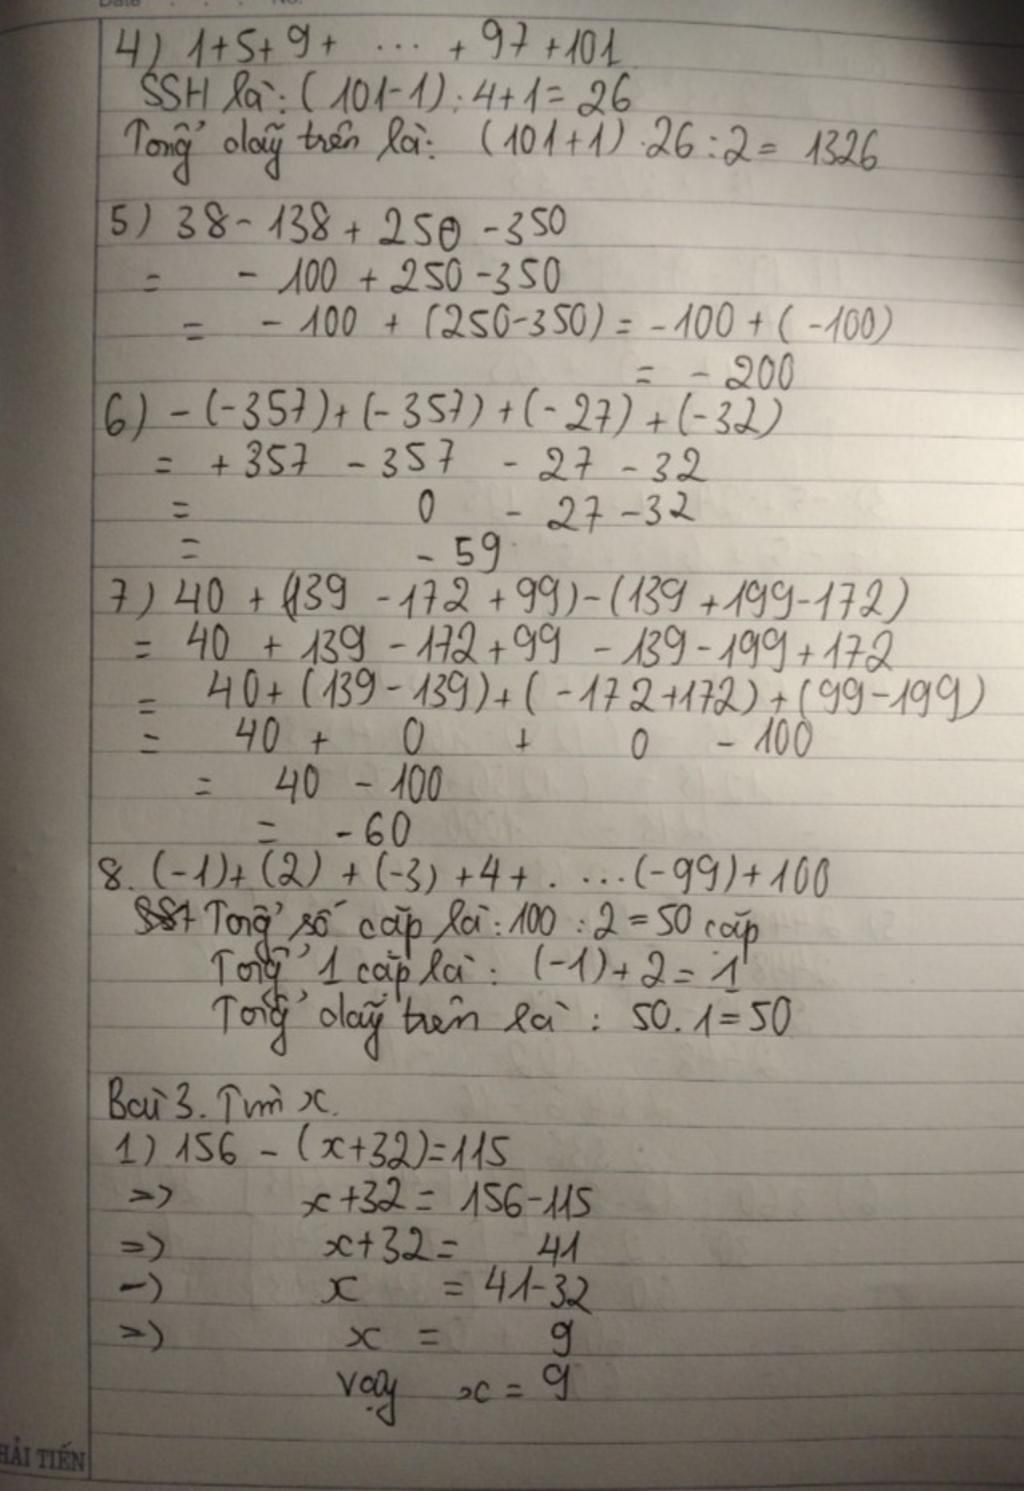 Date . . . No.
4) 1+5+9+ ... +97+101
SSH là: (101-1):4+1=26
Tổng dãy trên là: (101+1).26:2= 1326
5) 38-138+250-350
= -100+250-350
= -100+(250-350)=-100+(-100)
= -200
6) -(-357)+(-357)+(-27)+(-32)
= +357 -357 -27 -32
= 0 -27-32
= -59
7) 40+(139 -172+99)-(139+199-172)
= 40 + 139 -172+99 -139-199+172
= 40+(139-139)+(-172+172)+(99-199)
= 40 + 0 + 0 - 100
= 40 - 100
= -60
8. (-1)+(2)+(-3)+4+. ...(-99)+100
Tổng số cặp là: 100:2=50 cặp
Tổng 1 cặp là: (-1)+2=1
Tổng dãy trên là: 50.1=50
Bài 3. Tìm x.
1) 156-(x+32)=115
=> x+32= 156-115
=> x+32= 41
-) x = 41-32
=> x = 9
Vậy x = 9
HẢI TIẾN